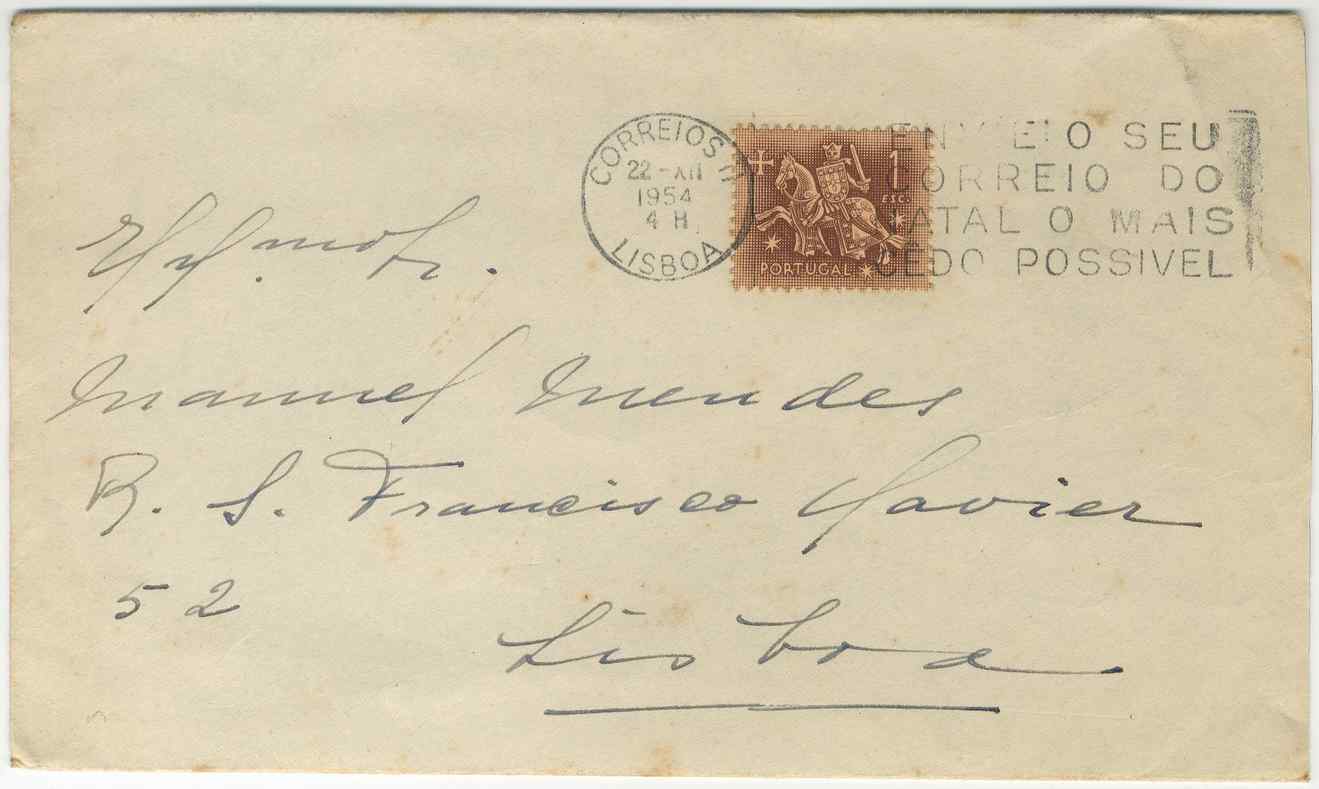 CORREIOS
22-XII
1954
4 H
LISBOA
1
ESC.
PORTUGAL
ENVIE O SEU
CORREIO DO
NATAL O MAIS
CEDO POSSIVEL
Manuel Mendes
R. S. Francisco Xavier
52
Lisboa